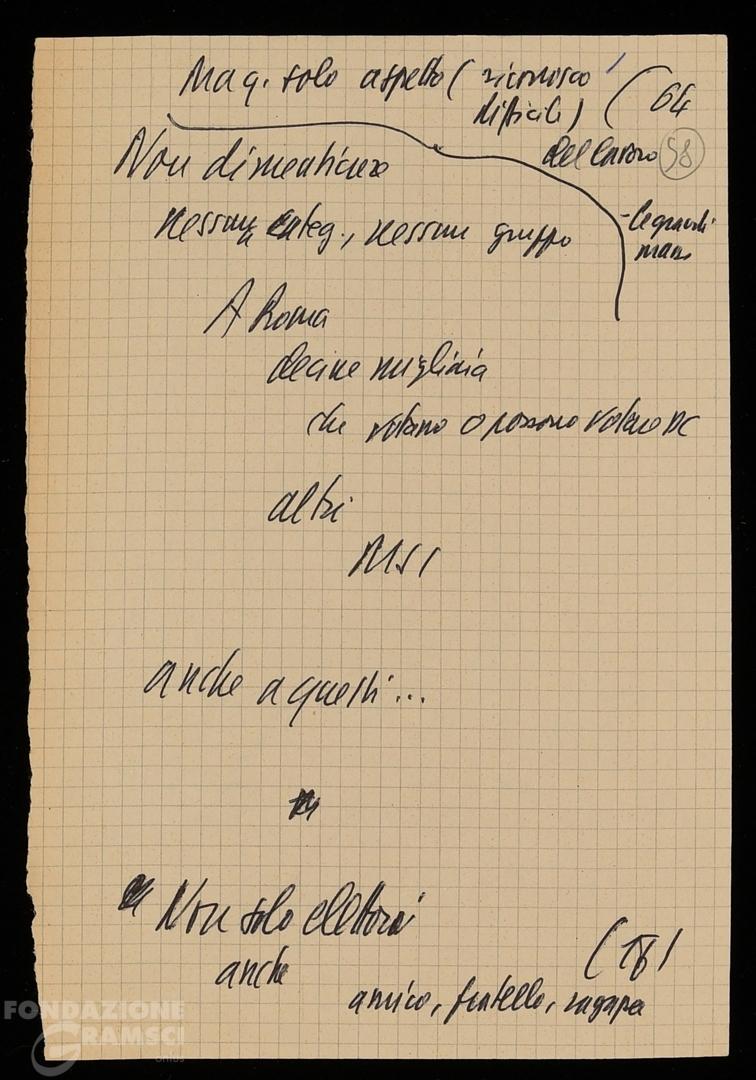 Mag. solo aspetto (riconosco
difficili) (64
del lavoro 58
Non dimenticare
- le grandi
mass
nessuna categ., nessun gruppo
A Roma
decine migliaia
che votano o possono votare DC
altri
MSI
anche a questi...
Non solo elettori
anche (18)
amico, fratello, ragazza
FONDAZIONE
GRAMSCI
onlus